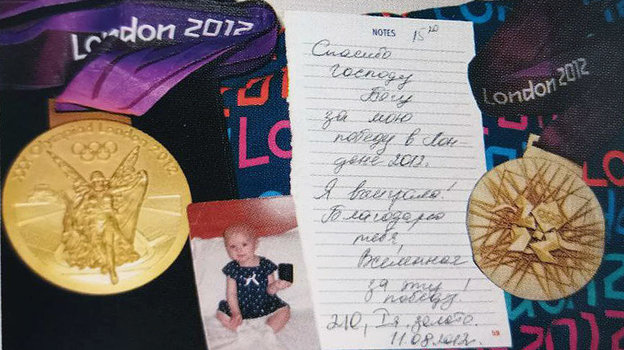 London 2012
XXX Olympiad London 2012
NOTES
15 20
Спасибо
Господу
Богу
за мою
победу в Лон-
доне 2012.
Я выиграла!
Благодарю
тебя,
Вселенная
за эту
победу!
210, I я. золото.
11.08.2012.
London 2012